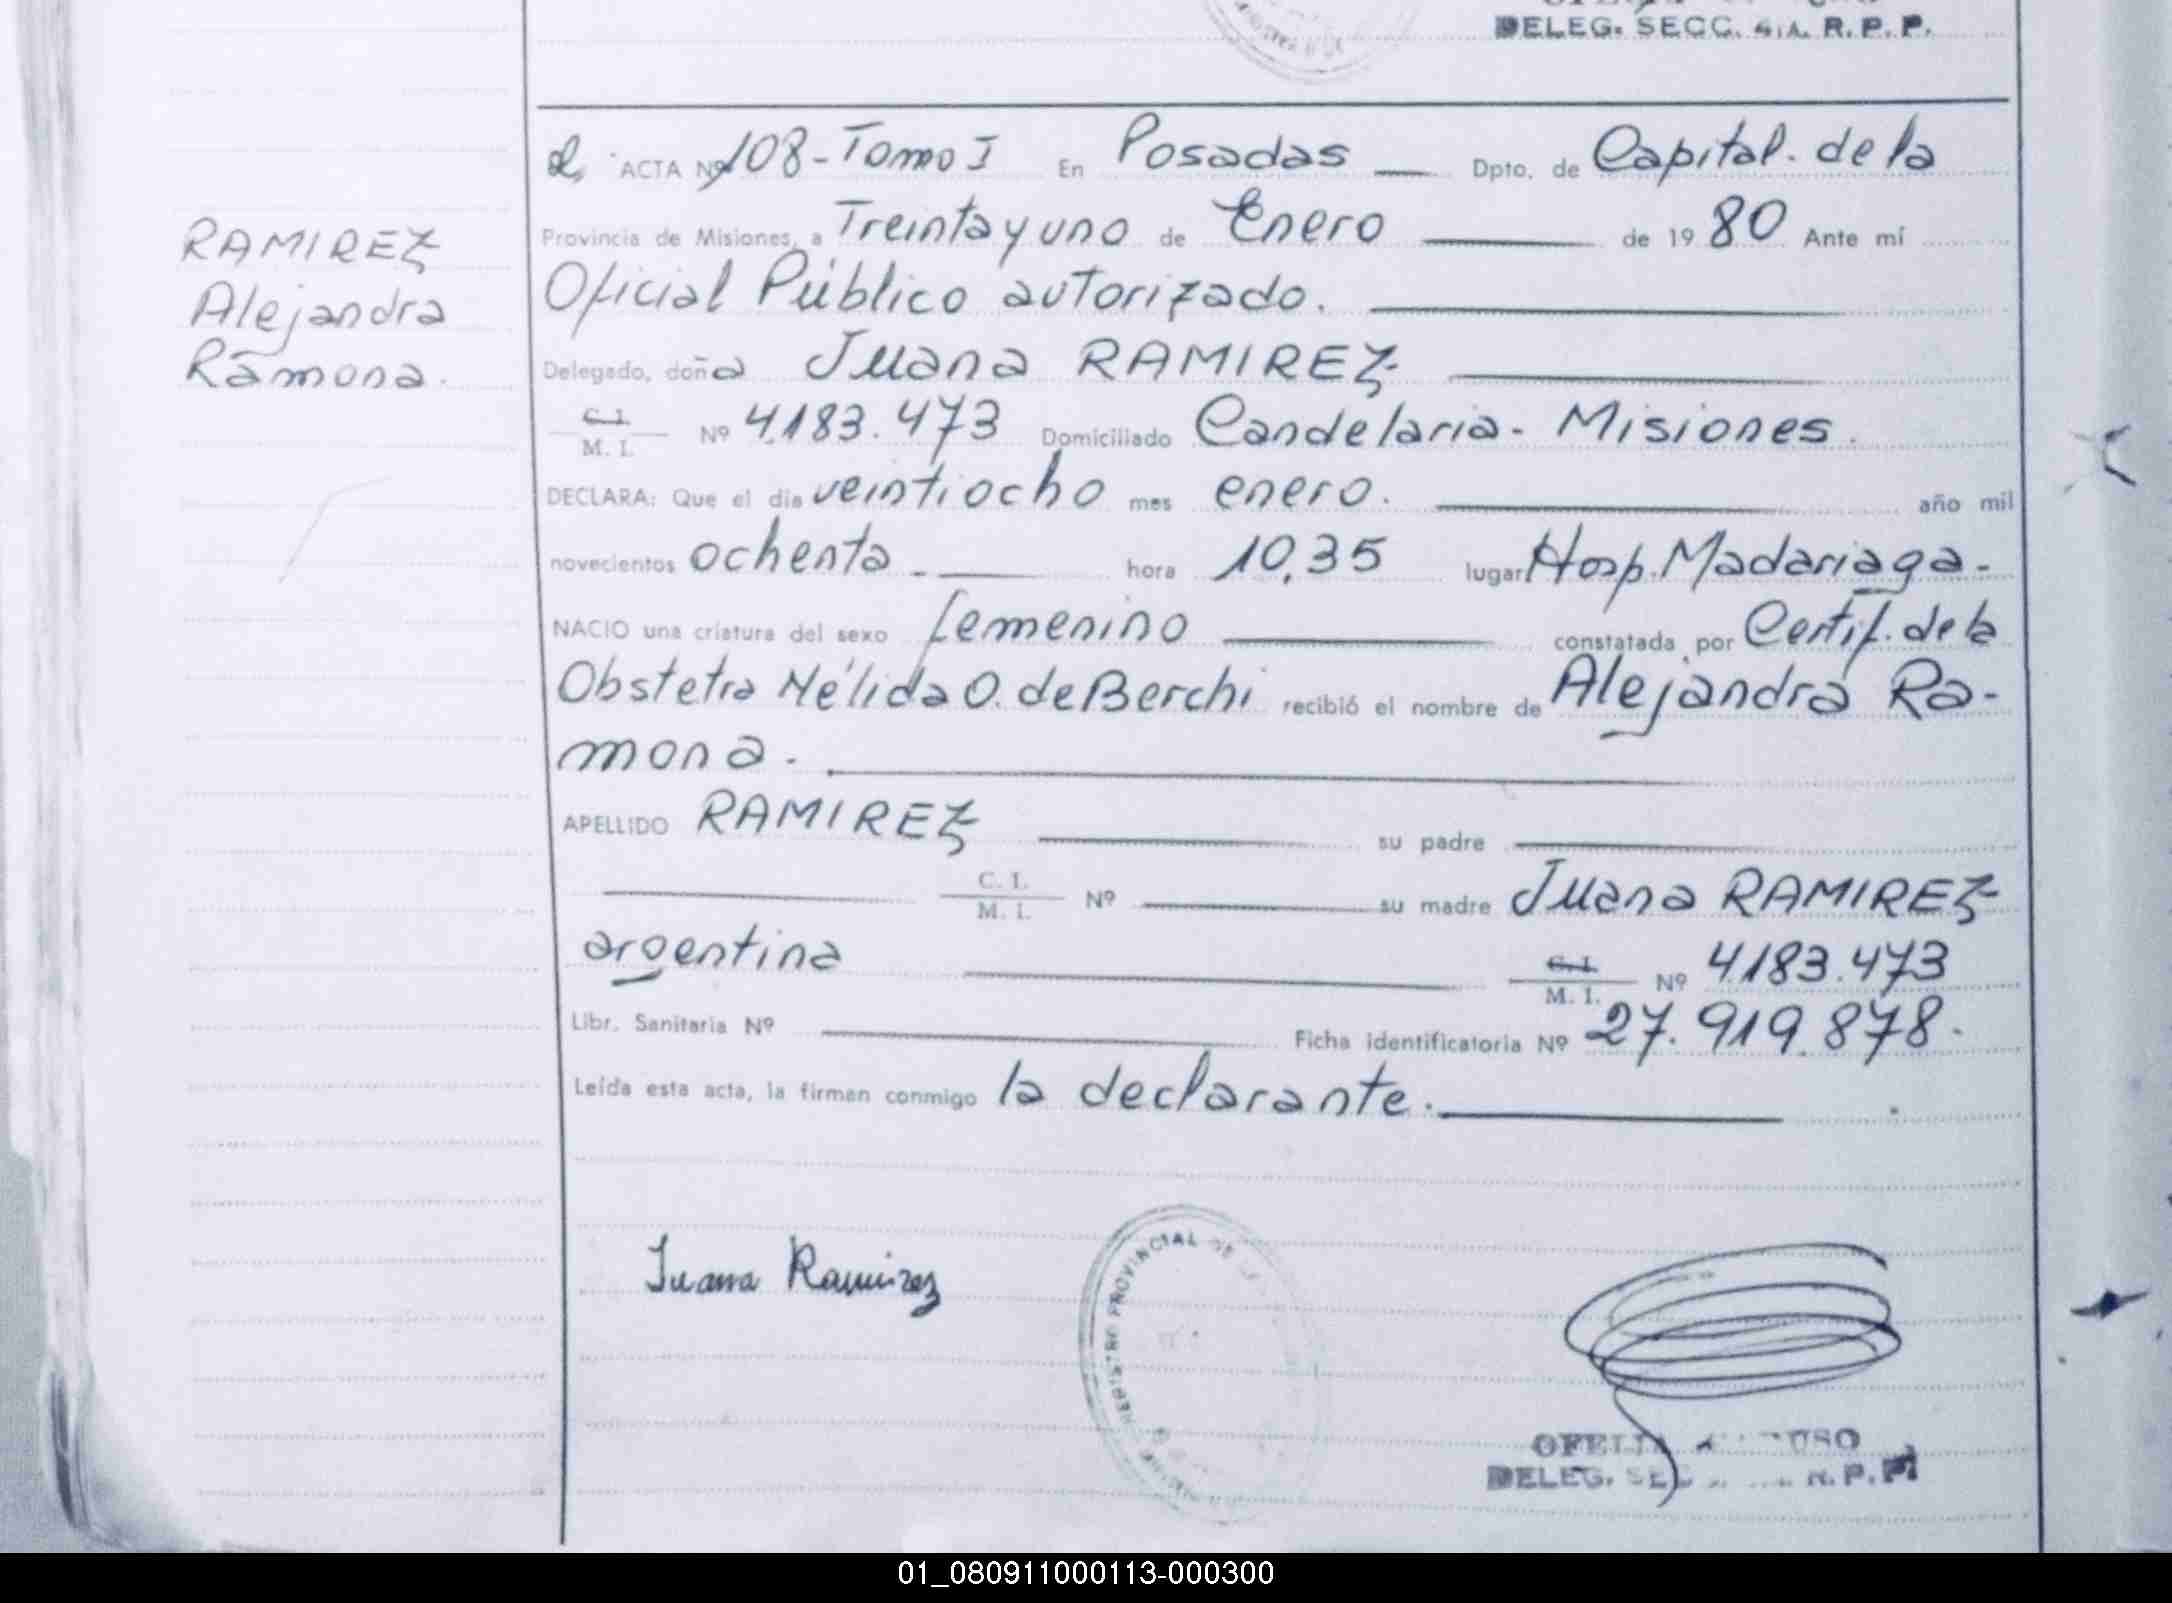 DELEG. SECC. 4ta. R. P. P.
ACTA Nº 108 - Tomo I En Posadas Dpto. de Capital. de la
Provincia de Misiones, a Treinta y uno de Enero de 19 80 Ante mí
RAMIREZ
Oficial Público autorizado.
Alejandra
Delegado, doña Juana RAMIREZ
Ramona.
C. I.
M. I. Nº 4.183.473 Domiciliado Candelaria - Misiones.
DECLARA: Que el día veintiocho mes enero. año mil
novecientos ochenta hora 10,35 lugar Hosp. Madariaga.
NACIO una criatura del sexo femenino constatada por Certif. de la
Obstetra Nélida O. de Berchi recibió el nombre de Alejandra Ra-
mona.
APELLIDO RAMIREZ su padre
C. I.
M. I. Nº su madre Juana RAMIREZ
argentina C. I.
M. I. Nº 4.183.473
Libr. Sanitaria Nº Ficha identificatoria Nº 27.919.878.
Leída esta acta, la firman conmigo la declarante.
Juana Ramirez
REGISTRO PROVINCIAL DE
DELEG. R. P. P.
01_080911000113-000300